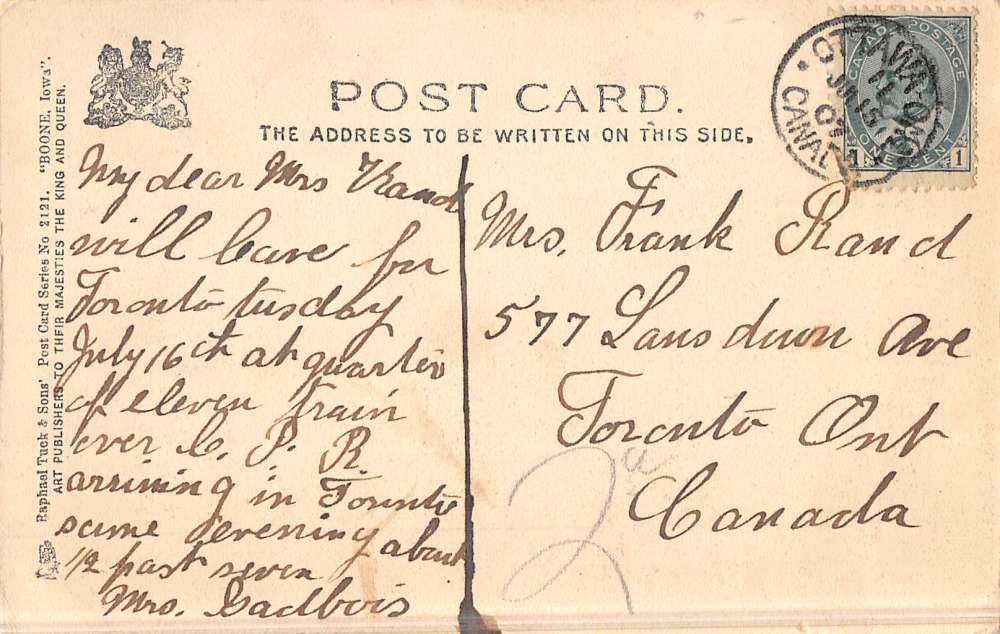 POST CARD.
THE ADDRESS TO BE WRITTEN ON THIS SIDE.
Raphael Tuck & Sons' Post Card Series No 2121. "BOONE, Iowa".
ART PUBLISHERS TO THEIR MAJESTIES THE KING AND QUEEN.
My dear Mrs Rand
will leave for
Toronto tusday
July 16th at quarter
of eleven train
over C. P. R.
arrining in Toronto
same evening about
1/2 past seven
Mrs. Gadbois
CANADA POSTAGE
1 ONE CENT 1
OTTAWA, ONT.
CANADA
Mrs. Frank Rand
577 Lansdown Ave
Toronto Ont
Canada